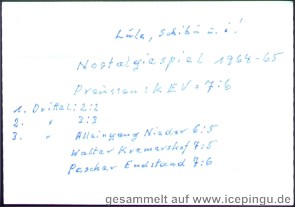 Lüla, Schibü u. i!
Nostalgiespiel 1964-65
Preussen : KEV = 7:6
1. Drittel: 2:2
2. " 3:3
3. " Alleingang Nieder 6:5
Walter Kremershof 7:5
Pascher Endstand 7:6
gesammelt auf www.icepingu.de